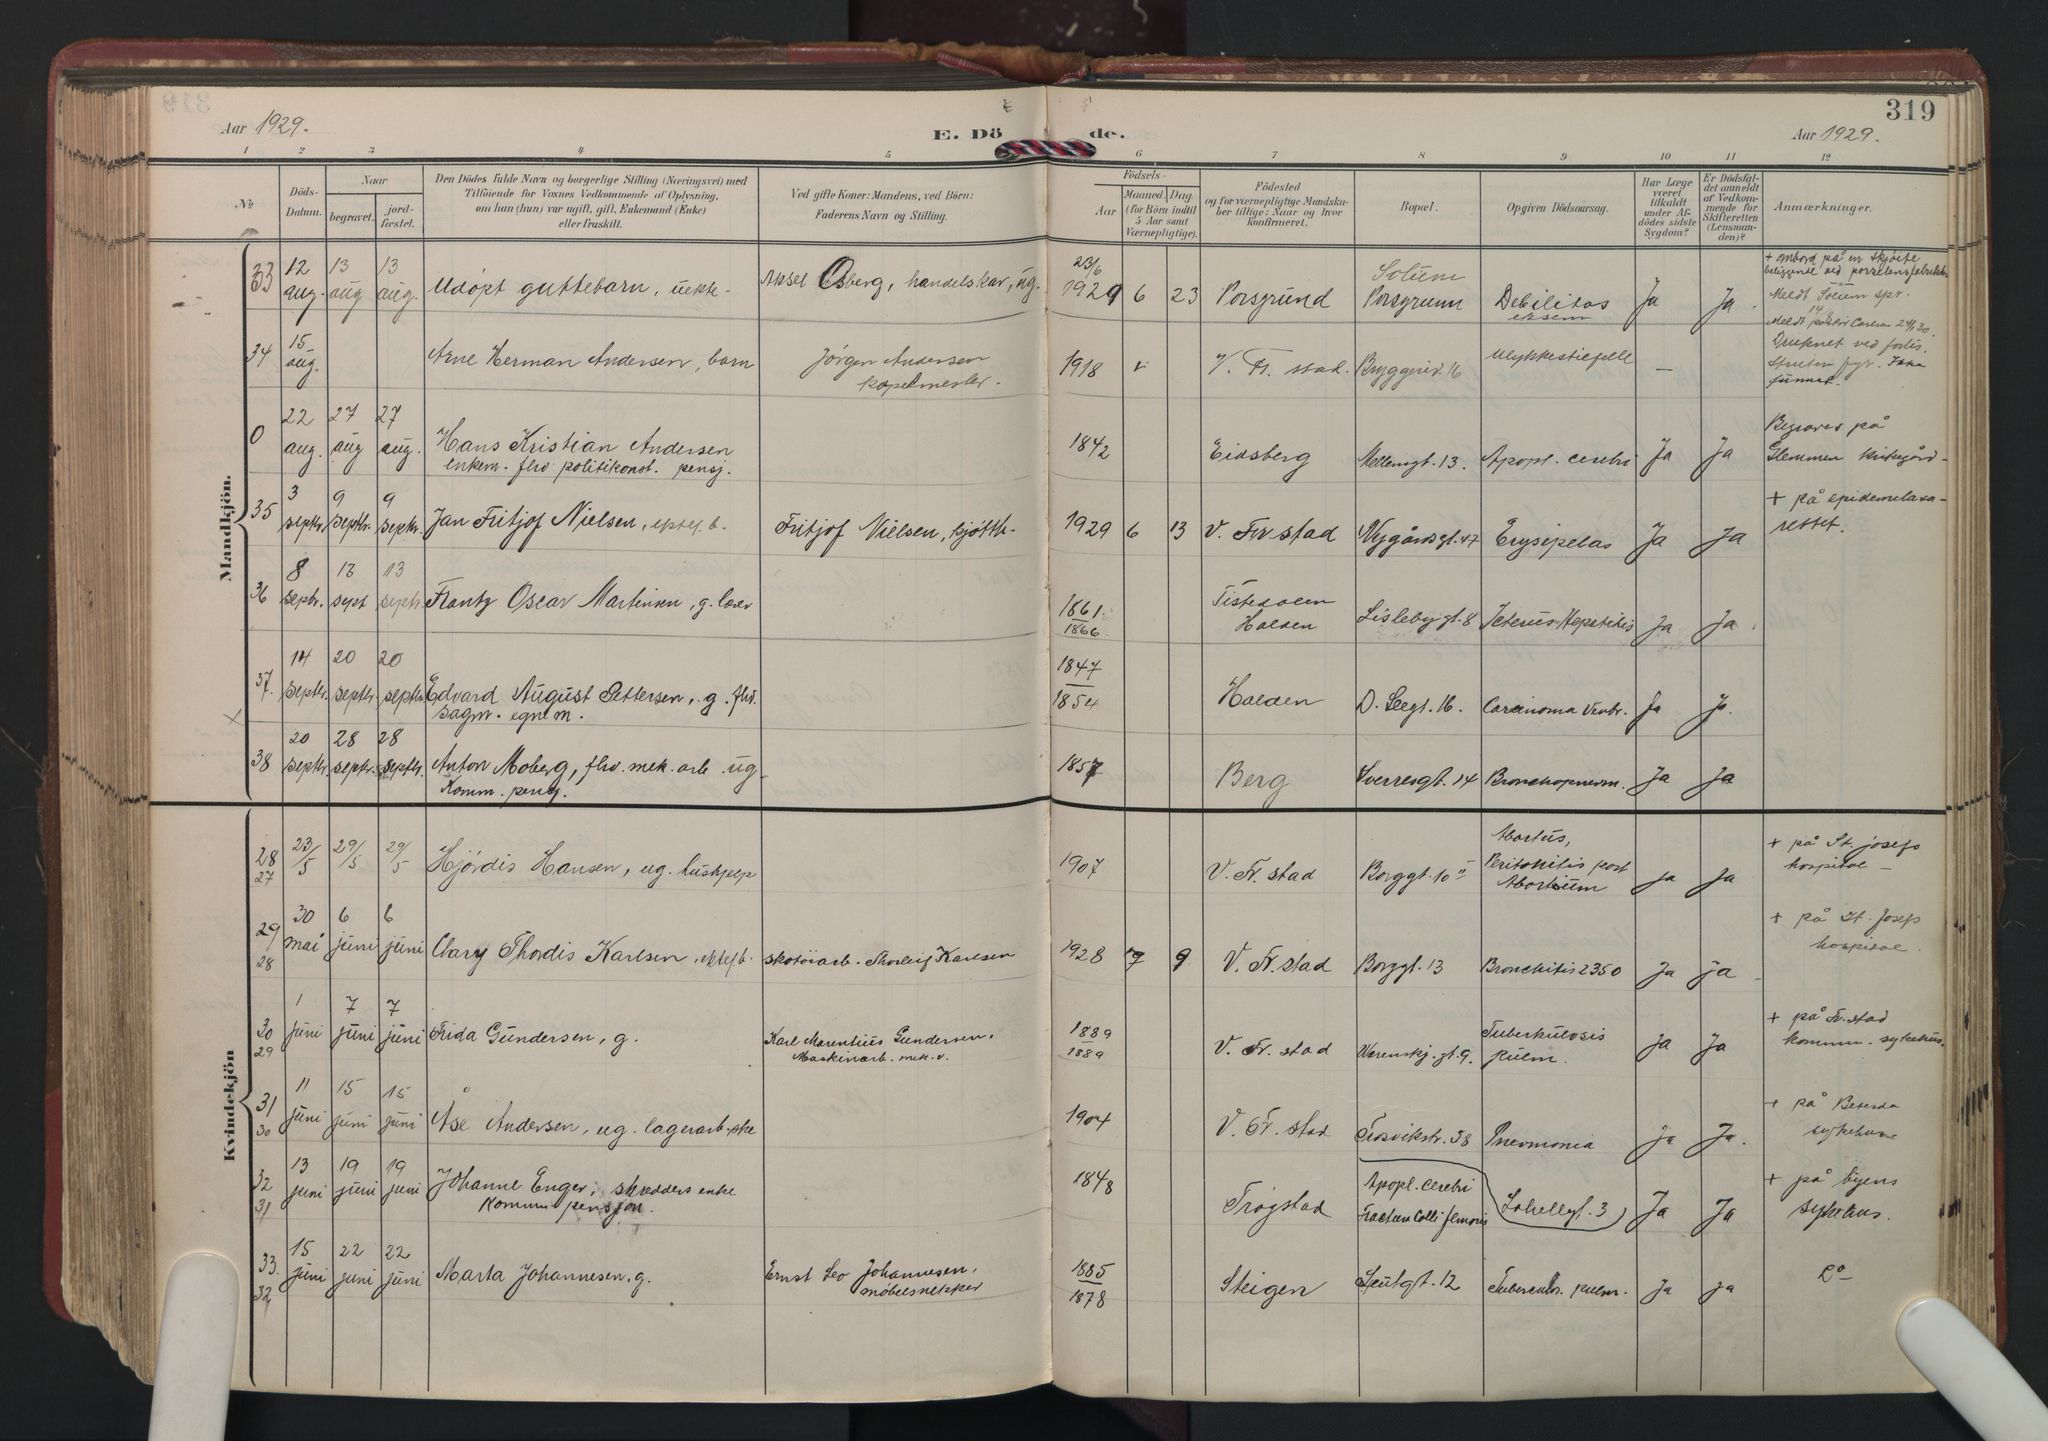 319
Aar 1929.
E. Dö de.
Aar 1929.
1 2 3 4 5 6 7 8 9 10 11 12
No
Döds-
Datum.
Naar
begravet.
jord-
fæstet.
Den Dödes fulde Navn og borgerlige Stilling (Næringsvei) med
Tilföiende for Voxnes Vedkommende af Oplysning,
om han (hun) var ugift, gift, Enkemand (Enke)
eller fraskilt.
Ved gifte Koner: Mandens, ved Börn:
Faderens Navn og Stilling.
Födsels-
Aar
Maaned. Dag.
(for Börn indtil
5 Aar samt
Værnepligtige).
Födested
og for værnepligtige Mandsku-
ber tillige: Naar og hvor
konfirmeret.
Bopæl.
Opgiven Dödsaarsag.
Har Læge
været
tilkaldt
under Af-
dödes sidste
Sygdom?
Er Dödsfal-
det anmeldt
af Vedkom-
mende for
Skifteretten
(Lensman-
den)?
Anmærkninger.
Mandkjön.
33 12 aug. 13 aug 13 aug. Udöpt guttebarn, uekte- Aksel Osberg, handelskar, ug. 23/6 1929 6 23 Porsgrund Solum Porsgrunn Debilitas eksem Ja Ja.
+ ombord på en skjöite
beliggende ved porselensfabrikk
Meldt Solum spr.
34 15 aug. Arne Herman Andersen, barn Jörgen Andersen 1918 V. Fr. stad. Bryggeriv. 16 Ulykkestilfelle —
Druknet ved
fyr. Ikke
funnet.
0 22 aug. 27 aug 27 aug. Hans Kristian Andersen 1842 Eidsberg Mellemgt. 13. Apopl. cerebri Ja Ja
enkem. fhv. politikonst. pensj.
Begraves på
Glemmen kirkegård-
35 3 septr. 9 septbr. 9 septr. Jan Fritjof Nielsen, ektef. b. Fritjof Nielsen, kjötth- 1929 6 13 V. Fr. stad Nygårdsgt. 47 Erysipelas Ja Ja
+ på epidemilasa-
rettet.
36 8 septbr. 13 sept 13 septr. Frantz Oscar Martinsen, g. 1861. 1866. Tistedalen Halden Lislebygt. 8 Icterus Hepatitis Ja Ja.
37. 14 septr. 20 septr. 20 septr. Edvard August Pettersen, g. fhv. 1847 1854 Halden D. Leegt. 16. Carcinoma Ventr. Ja Ja.
sagm. egne m.
38 20 septr. 28 septr. 28 septr. Anton Moberg, fhv. mek. arb. ug 1857 Berg Sverresgt. 14 Bronchopnevm. Ja Ja
Komm. pensj.
Kvindekjön
28 27 23/5 29/5 29/5 Hjördis Hansen, ug. hushjelp 1907 V. Fr. stad Borggt. 10 Abortus, Peritonitis post Abortum Ja Ja
+ på St. josefs
hospital —
29 28 30 mai 6 juni 6 juni Clary Thordis Karlsen, ektef. b. skotöiarb. Thorleif Karlsen 1928 7 9 V. Fr. stad Borggt. 13 Bronchitis Ja ja
+ på St. Josefs
hospital.
30 29 1 juni 7 juni 7 juni Frida Gundersen, g. Karl Marentius Gundersen, 1889 1889 V. Fr. stad Werenskj. gt. 9. Tuberkulosis pulm. Ja Ja
Maskinarb. mek. v.
+ på Fr. stad
kommun. sykehus.
31 30 11 juni 15 juni 15 juni Åse Andersen, ug. lagerarb.ske 1904 V. Fr. stad Trosvikstr. 58 Pnevmonia Ja Ja.
+ på Betesda
sykehus
32 31 13 juni 19 juni 19 juni Johanne Enger, skredders enke 1848 Trögstad Apopl. cerebri Fractura Colli femoris gt. 3 Ja Ja
Kommu. pensjon.
+ på byens
sykehus.
33. 32 15 juni 22 juni 22 juni Marta Johannesen, g. Ernst Leo Johannesen, 1885 1878 Steigen gt. 12 Tubercul. pulm. Ja ja Do
möbelsnekker